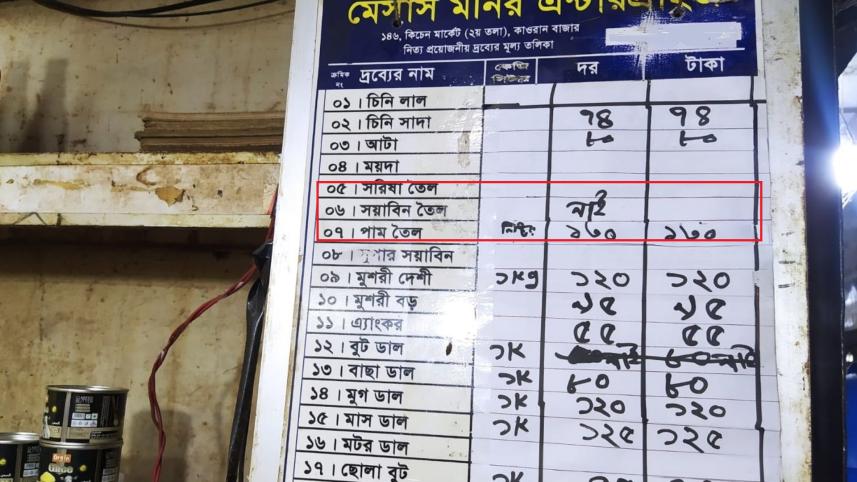 মেসার্স মনির এন্টারপ্রাইজ
১৪৬, কিচেন মার্কেট (২য় তলা), কাওরান বাজার
নিত্য প্রয়োজনীয় দ্রব্যের মূল্য তালিকা
ক্রমিক নং দ্রব্যের নাম কেজি লিটার দর টাকা
০১। চিনি লাল
০২। চিনি সাদা ৭৪ ৭৪
০৩। আটা ৮০ ৮০
০৪। ময়দা
০৫। সরিষা তৈল
০৬। সয়াবিন তৈল নাই
০৭। পাম তৈল লিটার ১৩০ ১৩০
০৮। সুপার সয়াবিন
০৯। মুশরী দেশী ১Kg ১২০ ১২০
১০। মুশরী বড় ৯৫ ৯৫
১১। এ্যাংকর ৫৫ ৫৫
১২। বুট ডাল ১K নাই
১৩। বাছা ডাল ১K ৮০ ৮০
১৪। মুগ ডাল ১K ১২০ ১২০
১৫। মাস ডাল ১K ১২৫ ১২৫
১৬। মটর ডাল
১৭। ছোলা বুট